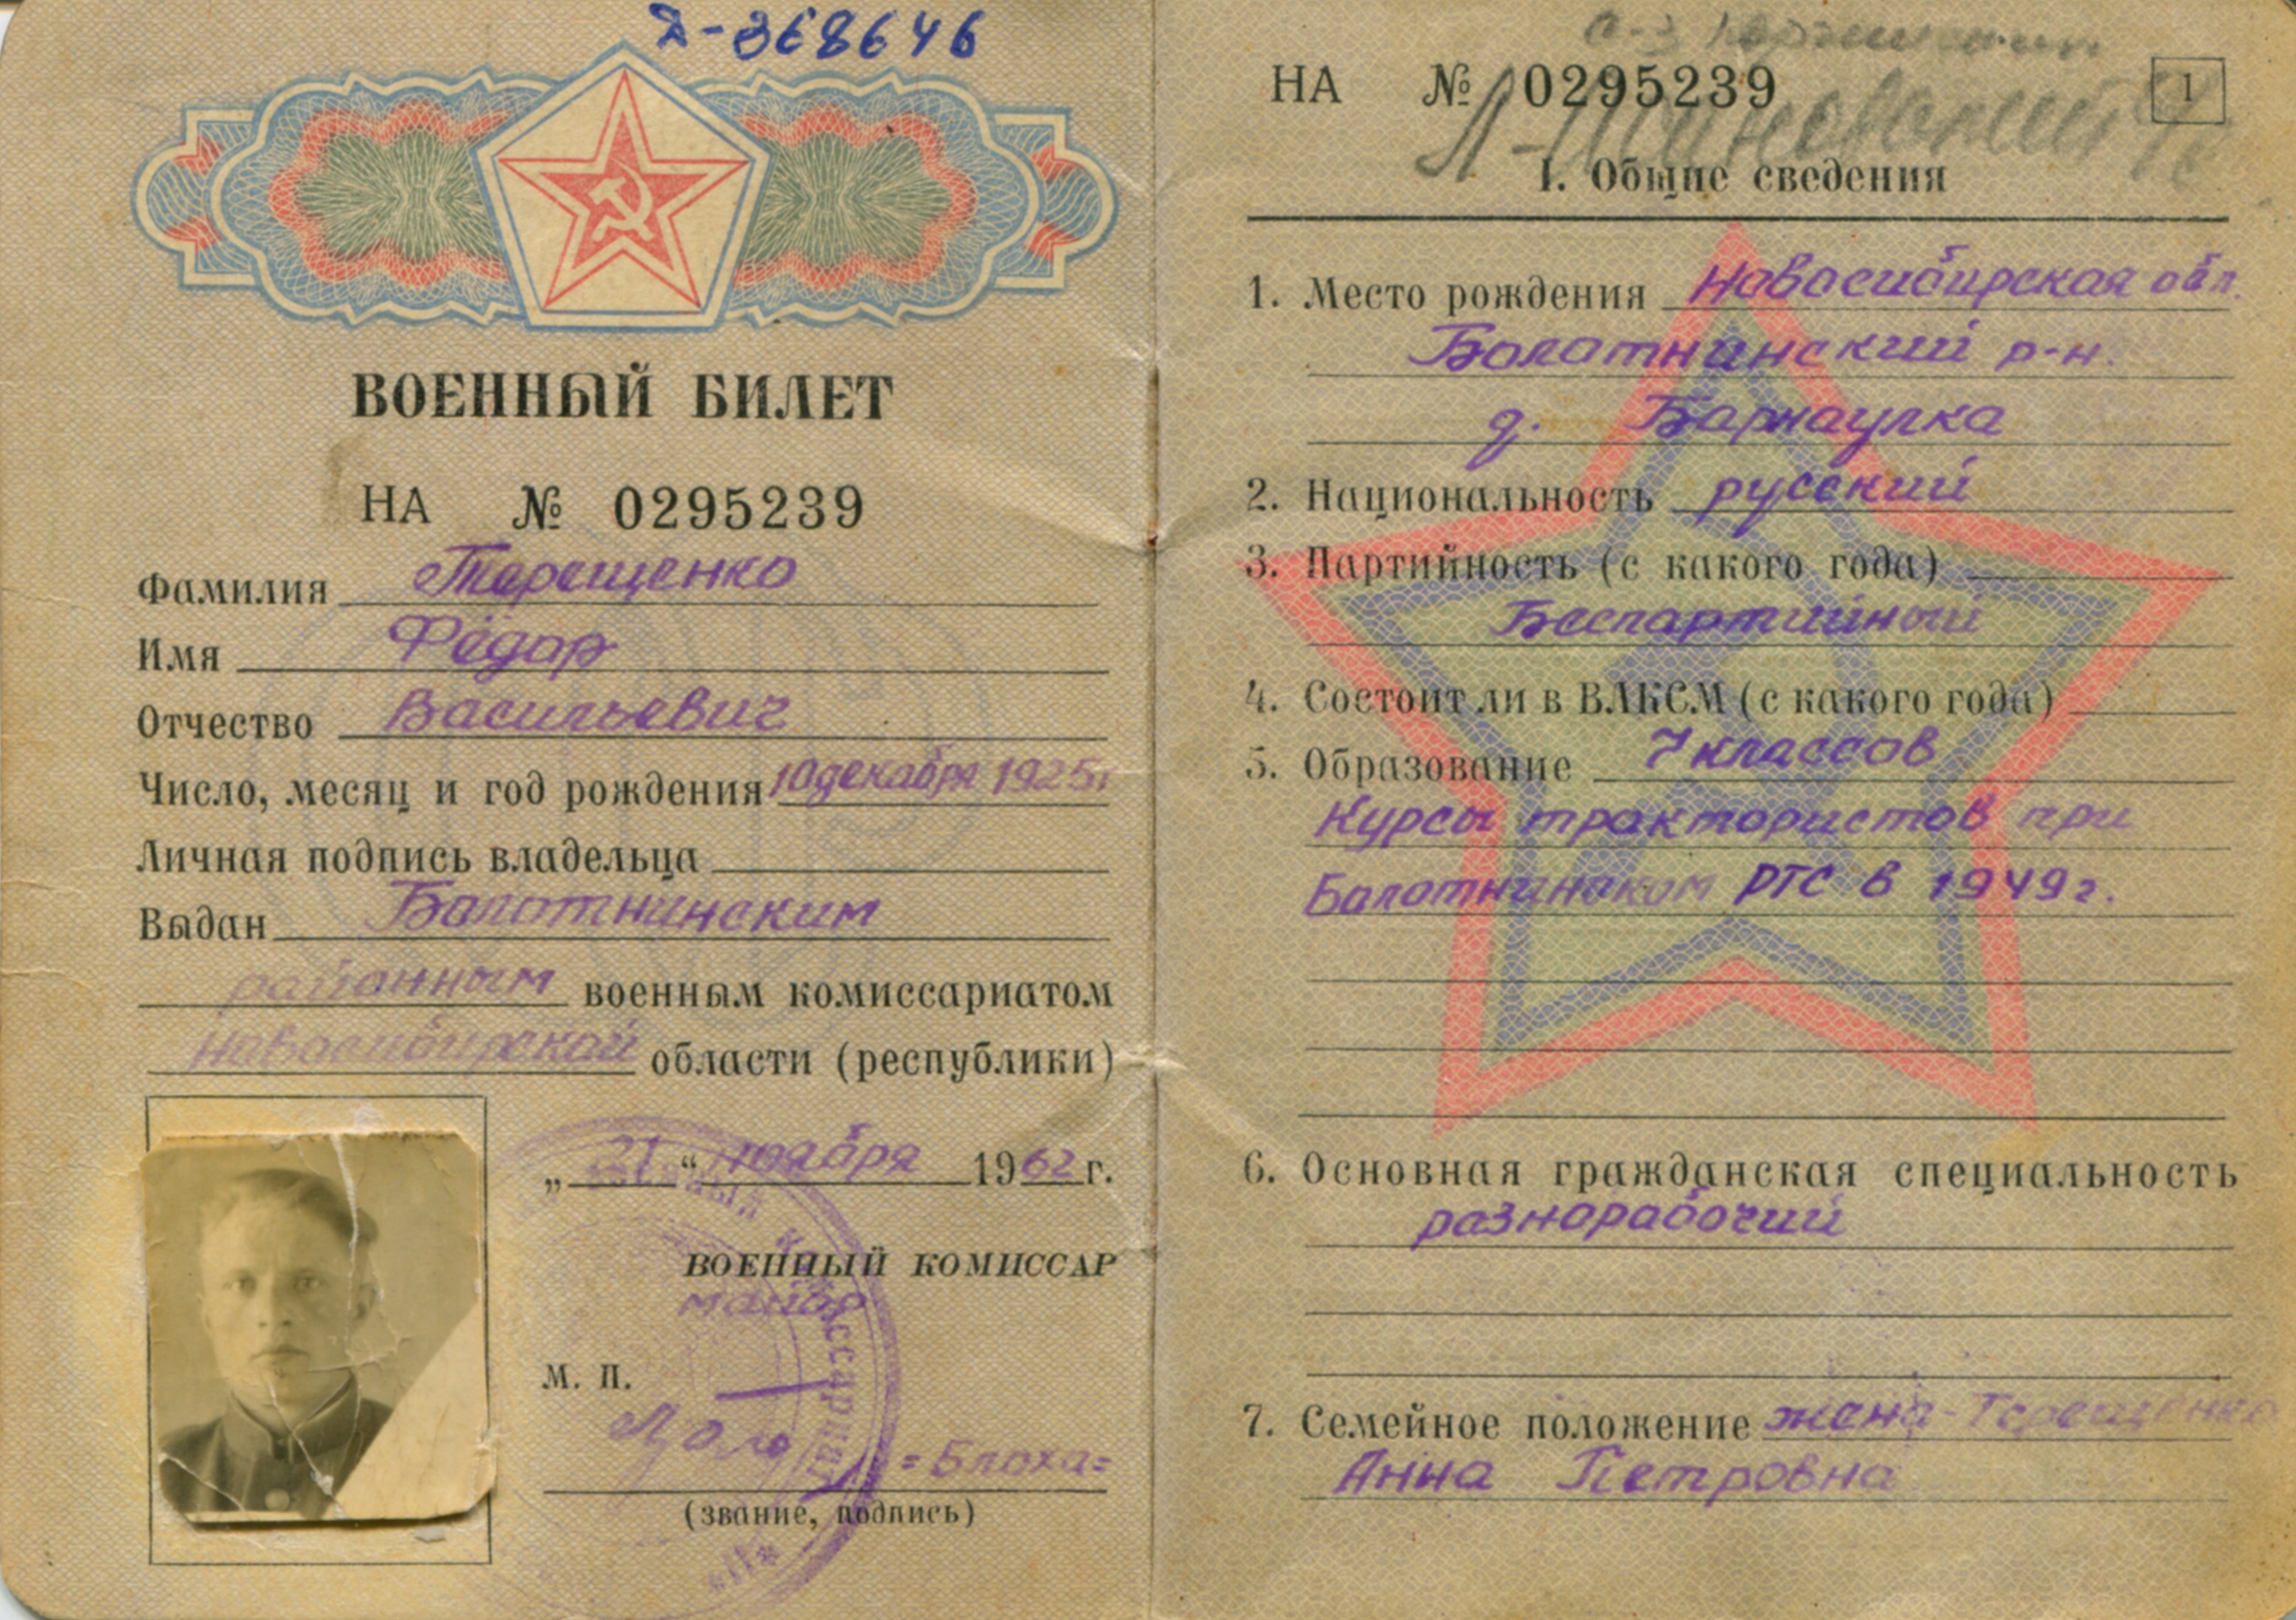 Д-368646
ВОЕННЫЙ БИЛЕТ
НА № 0295239
Фамилия Терещенко
Имя Фёдор
Отчество Васильевич
Число, месяц и год рождения 10 декабря 1925г
Личная подпись владельца
Выдан Болотнинским
районным военным комиссариатом
Новосибирской области (республики)
„21“ ноября 1962 г.
ВОЕННЫЙ КОМИССАР
майор
М. П.
=Блоха=
(звание, подпись)
НА № 0295239
1
I. Общие сведения
1. Место рождения Новосибирская обл.
Болотнинский р-н.
д. Барнаулка
2. Национальность русский
3. Партийность (с какого года)
Беспартийный
4. Состоит ли в ВЛКСМ (с какого года)
5. Образование 7 классов
Курсы трактористов при
Болотнинском РТС в 1949г.
6. Основная гражданская специальность
разнорабочий
7. Семейное положение жена - Терещенко
Анна Петровна